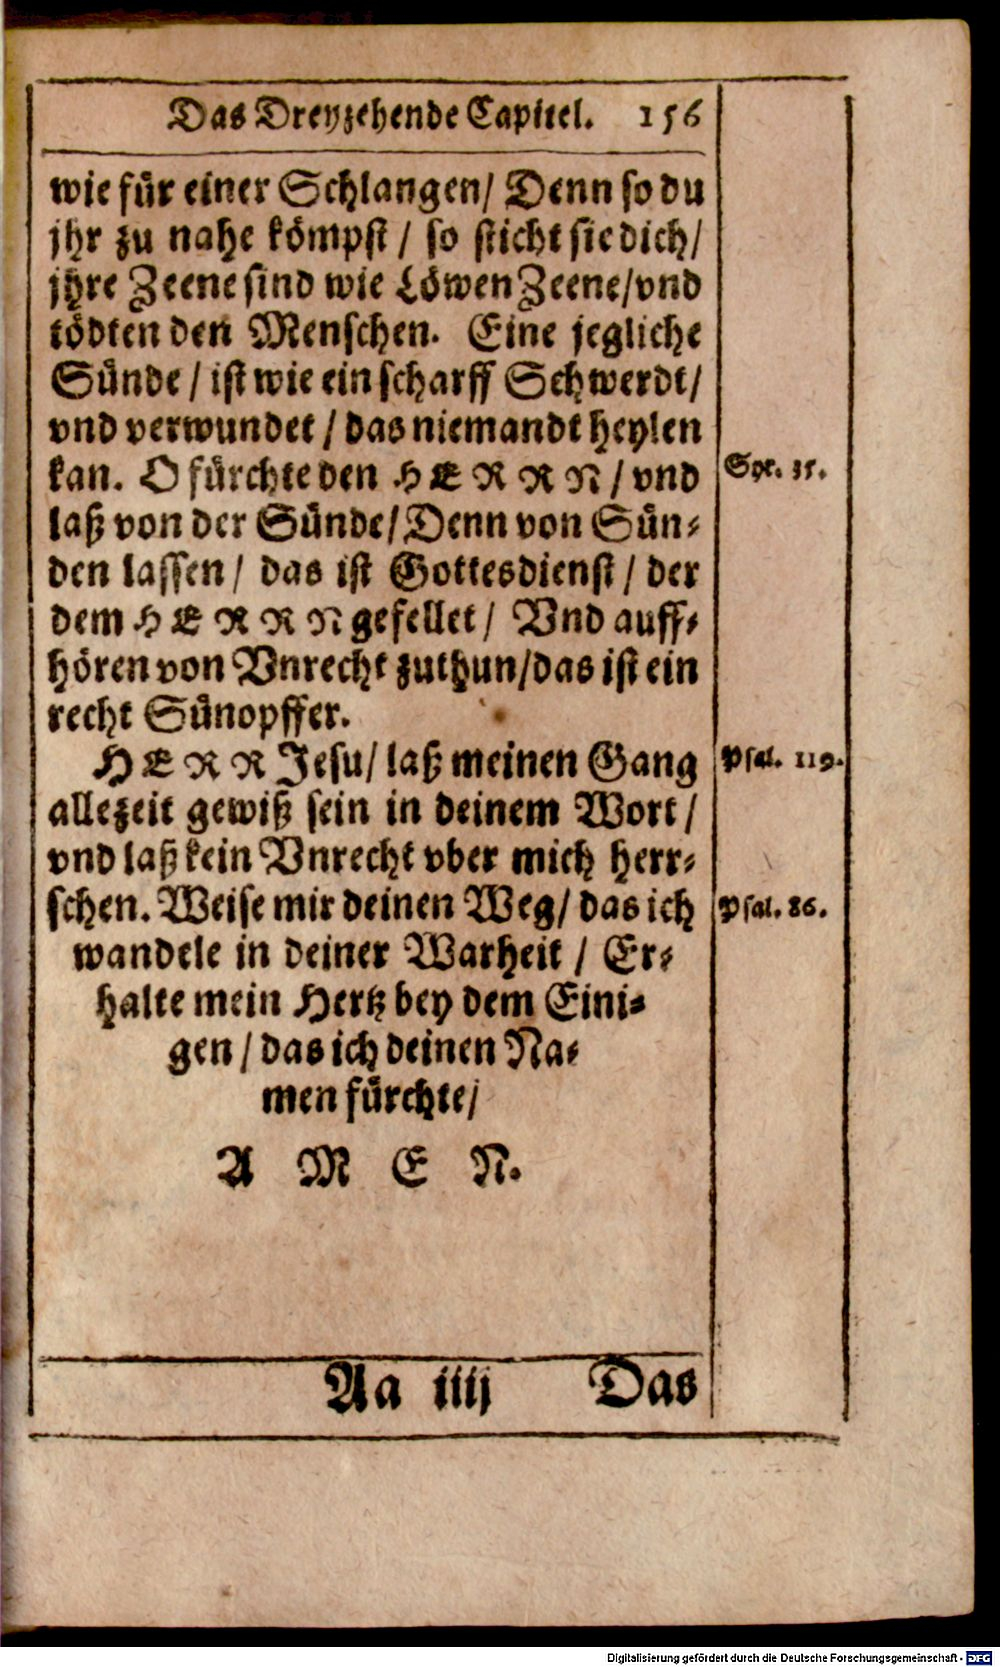 Das Dreyzehende Capitel. 156
wie für einer Schlangen/ Denn so du
jhr zu nahe kömpst / so sticht sie dich/
jhre Zeene sind wie Löwen Zeene/vnd
tödten den Menschen. Eine jegliche
Sünde / ist wie ein scharff Schwerdt/
vnd verwundet / das niemandt heylen
kan. O fürchte den HERRN / vnd
Syr. 35.
laß von der Sünde/ Denn von Sün-
den lassen / das ist Gottesdienst / der
dem HERRN gefellet / Vnd auff-
hören von Vnrecht zuthun/das ist ein
recht Sünopffer.
HERR Jesu/ laß meinen Gang
Psal. 119.
allezeit gewiß sein in deinem Wort /
vnd laß kein Vnrecht vber mich herr-
schen. Weise mir deinen Weg/ das ich
Psal. 86.
wandele in deiner Warheit / Er-
halte mein Hertz bey dem Eini-
gen / das ich deinen Na-
men fürchte/
A M E N.
Aa iiij Das
Digitalisierung gefördert durch die Deutsche Forschungsgemeinschaft - DFG